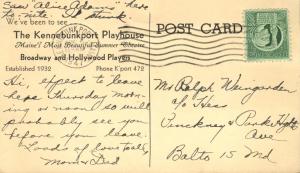 Saw "Alice Adams" here
to-nite. It stunk.
We've been to see
The Kennebunkport Playhouse
Maine's Most Beautiful Summer Theatre
Broadway and Hollywood Players
Established 1932 Phone K'port 472
Hi, expect to leave
here Thursday morn-
ing or noon so will
probably see you
before you leave.
Loads of love to all,
Mom & Dad
POST CARD
Mr Ralph Weingarden
c/o Hess
Pinckney & Park Hgts
Ave
Balto 15 Md